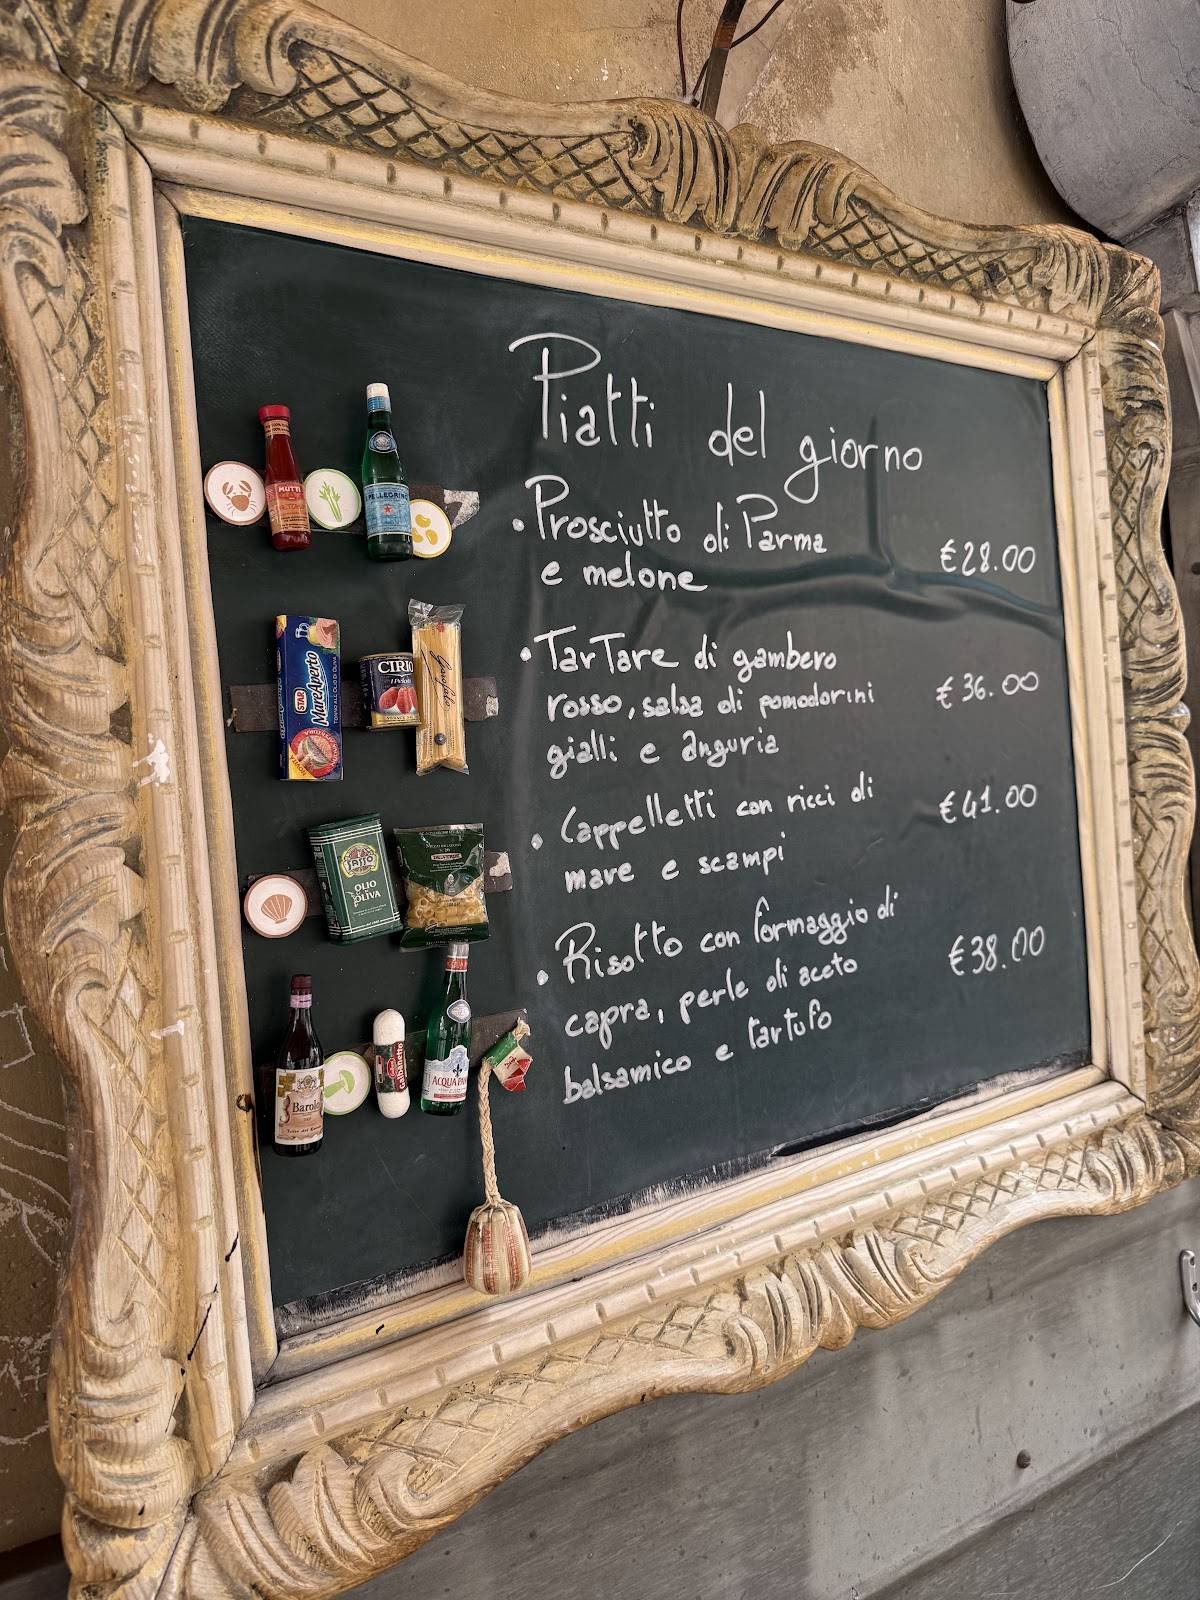 Piatti del giorno
• Prosciutto di Parma
e melone €28.00
• Tartare di gambero
rosso, salsa di pomodorini €36.00
gialli e anguria
• Cappelletti con ricci di €41.00
mare e scampi
• Risotto con formaggio di
capra, perle di aceto €38.00
balsamico e tartufo
MUTTI
S.PELLEGRINO
STAR
MareAperto
CIRIO
Garofalo
SASSO
OLIO
DI OLIVA
DELVERDE
Barolo
Galbanetto
ACQUA PANNA